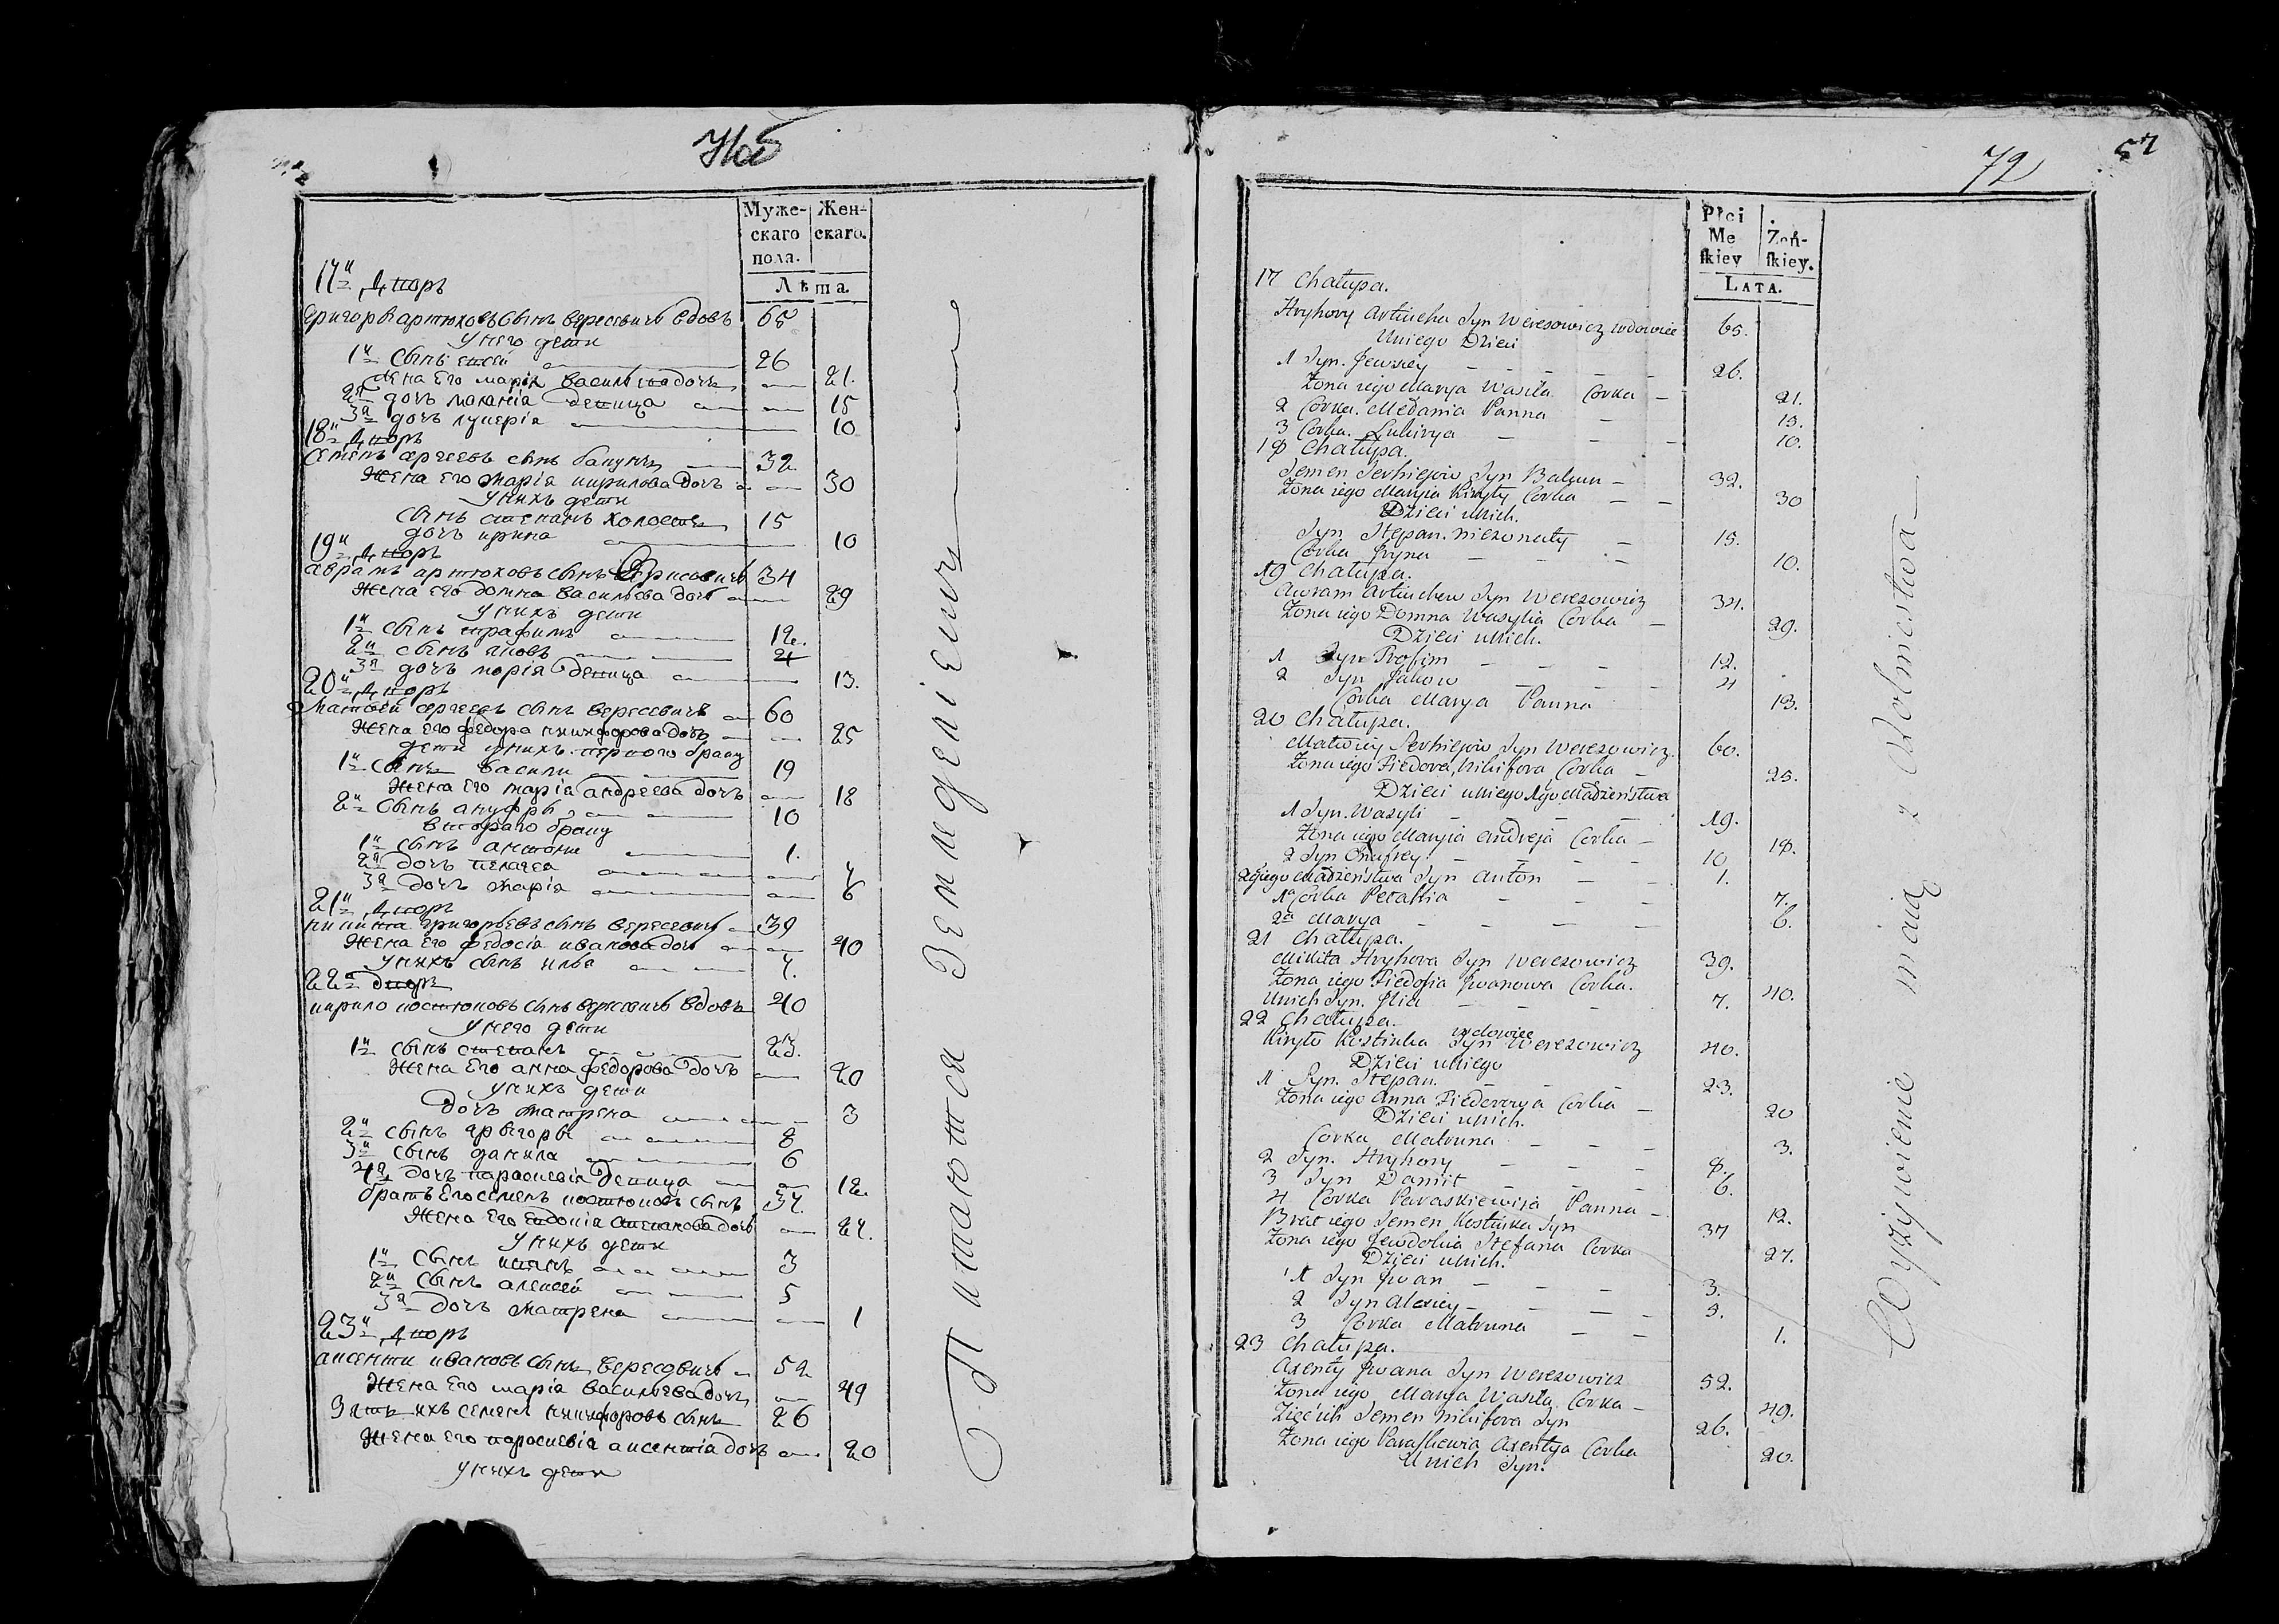 Муже-
скаго
пола.
Жен-
скаго.
Лѣта.
17й дворъ
григорьй артюховъ сынъ вересовичь вдовъ 65
у него дети
1й сынъ 26
жена его марія васильева дочь 21.
2я дочь маланія девица 15
3я дочь лукерія 10
18й дворъ
семенъ сергеевъ сынъ балунъ 32
жена его марія кирилова дочь 30
у нихъ дети
сынъ степанъ холостъ 15
дочь ирина 10
19й дворъ
аврамъ артюховъ сынъ 34
жена его домна васильева дочь 29
у нихъ дети
1й сынъ трафимъ 12.
2й сынъ яковъ 4
3я дочь марія девица 13.
20й дворъ
матвей сергеевъ сынъ вересевичь 60
жена его федора никифорова дочь 25
дети у нихъ первого браку
1й сынъ васили 19
жена его марія андреева дочь 18
2й сынъ ануфры 10
втораго браку
1й сынъ антонъ 1.
2я дочь пелагея 7
3я дочь марія 6
21й дворъ
никита григорьевъ сынъ вересевичь 39
жена его федосія иванова дочь 40
у нихъ сынъ илья 7.
22й дворъ
кирило костюковъ сынъ вересевичь вдовъ 40
у него дети
1й сынъ степанъ 23.
жена его анна федорова дочь 20
у нихъ дети
дочь матрена 3
2й сынъ грыгоры 8
3й сынъ данила 6
4я дочь параскевія девица 12.
братъ его семенъ костюковъ сынъ 37.
жена его евдокія степанова дочь 27.
у нихъ дети
1й сынъ иванъ 3
2й сынъ алексей 5
3я дочь матрена 1
23й дворъ
аксенти ивановъ сынъ вересовичь 52
жена его марія васильева дочь 49
зять ихъ семенъ никифоровъ сынъ 26
жена его параскевія аксентія дочь 20
у нихъ дети
Питаются Земледелiемъ
72
57
Płci
Mę
skiey
Żeń-
skiey.
LATA.
17 Chałupa.
Hryhory Artiucha Syn Weresowicz wdowiec 65.
U niego Dzieci
1 Syn. Jewsiey 26.
Zona iego Marya Wasila Corka 21.
2 Corka. Mełania Panna 15.
3 Corka. Lukirya 10.
18 Chałupa.
Semen Serhiejow Syn Bałun 32.
Zona iego Maryia Kiryły Corka 30
Dzieci u nich.
Syn Stepan. niezonaty 15.
Corka Iryna 10.
19 Chałupa.
Awram Artiuchow Syn Weresowicz 34.
Zona iego Domna Wasylia Corka 29.
Dzieci u nich.
1 Syn Trofim 12.
2 Syn Jakow 4
Corka Marya Panna 13.
20 Chałupa.
Matwiey Serhiejow Syn Weresowicz 60.
Zona iego Fiedora, Nikifora Corka 25.
Dzieci u niego 1go Małżeństwa
1 Syn. Wasyli 19.
Zona iego Maryia Andreja Corka 18.
2 Syn Onufrey. 10
2giego Małżeństwa Syn Anton 1.
1a Corka Petahia 7.
2a Marya 6.
21 Chałupa.
Mikita Hryhora Syn Weresowicz 39.
Zona iego Fiedosia Iwanowa Corka. 40.
U nich Syn. Ilia 7.
22 Chałupa.
Kiryło Kostiuka Syn Weresowicz wdowiec 40.
Dzieci u niego
1 Syn. Stepan. 23.
Zona iego Anna Fiederowa Corka 20
Dzieci u nich.
Corka Matruna 3.
2 Syn. Hryhory 8.
3 Syn Daniło 6.
4 Corka Paraskiewija Panna 12.
Brat iego Semen Kostiuka Syn 37
Zona iego Jewdokia Stefana Corka 27.
Dzieci u nich.
1 Syn Iwan 3.
2 Syn Alexiey 5.
3 Corka Matruna 1.
23 Chałupa.
Axenty Iwana Syn Weresowicz 52.
Zona iego Marya Wasila Corka 49.
Zięć ich Semen Nikifora Syn 26.
Zona iego Paraskewia Axentya Corka 20.
U nich Syn.
Wyżywienie maią z Rolnictwa